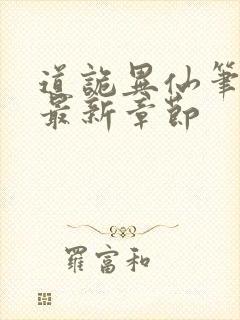 道詭異仙筆
最新章節
羅富和